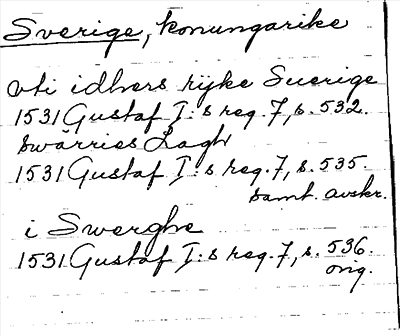 Sverige, konungarike
vti idhers rijke Suerige
1531 Gustaf I:s reg. 7, s. 532.
Swärries Lagh
1531 Gustaf I:s reg. 7, s. 535.
samt. avskr.
i Swerghe
1531 Gustaf I:s reg. 7, s. 536.
orig.